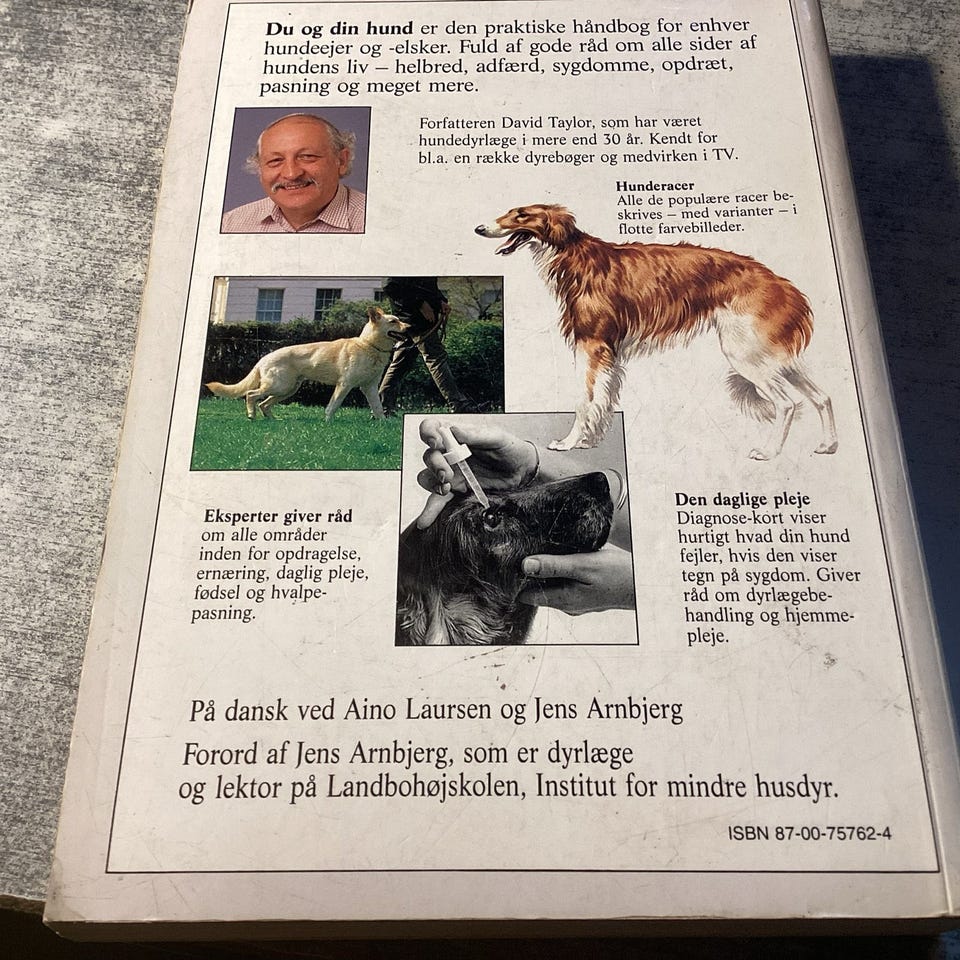 Du og din hund er den praktiske håndbog for enhver
hundeejer og -elsker. Fuld af gode råd om alle sider af
hundens liv – helbred, adfærd, sygdomme, opdræt,
pasning og meget mere.
Forfatteren David Taylor, som har været
hundedyrlæge i mere end 30 år. Kendt for
bl.a. en række dyrebøger og medvirken i TV.
Hunderacer
Alle de populære racer be-
skrives – med varianter – i
flotte farvebilleder.
Eksperter giver råd
om alle områder
inden for opdragelse,
ernæring, daglig pleje,
fødsel og hvalpe-
pasning.
Den daglige pleje
Diagnose-kort viser
hurtigt hvad din hund
fejler, hvis den viser
tegn på sygdom. Giver
råd om dyrlægebe-
handling og hjemme-
pleje.
På dansk ved Aino Laursen og Jens Arnbjerg
Forord af Jens Arnbjerg, som er dyrlæge
og lektor på Landbohøjskolen, Institut for mindre husdyr.
ISBN 87-00-75762-4